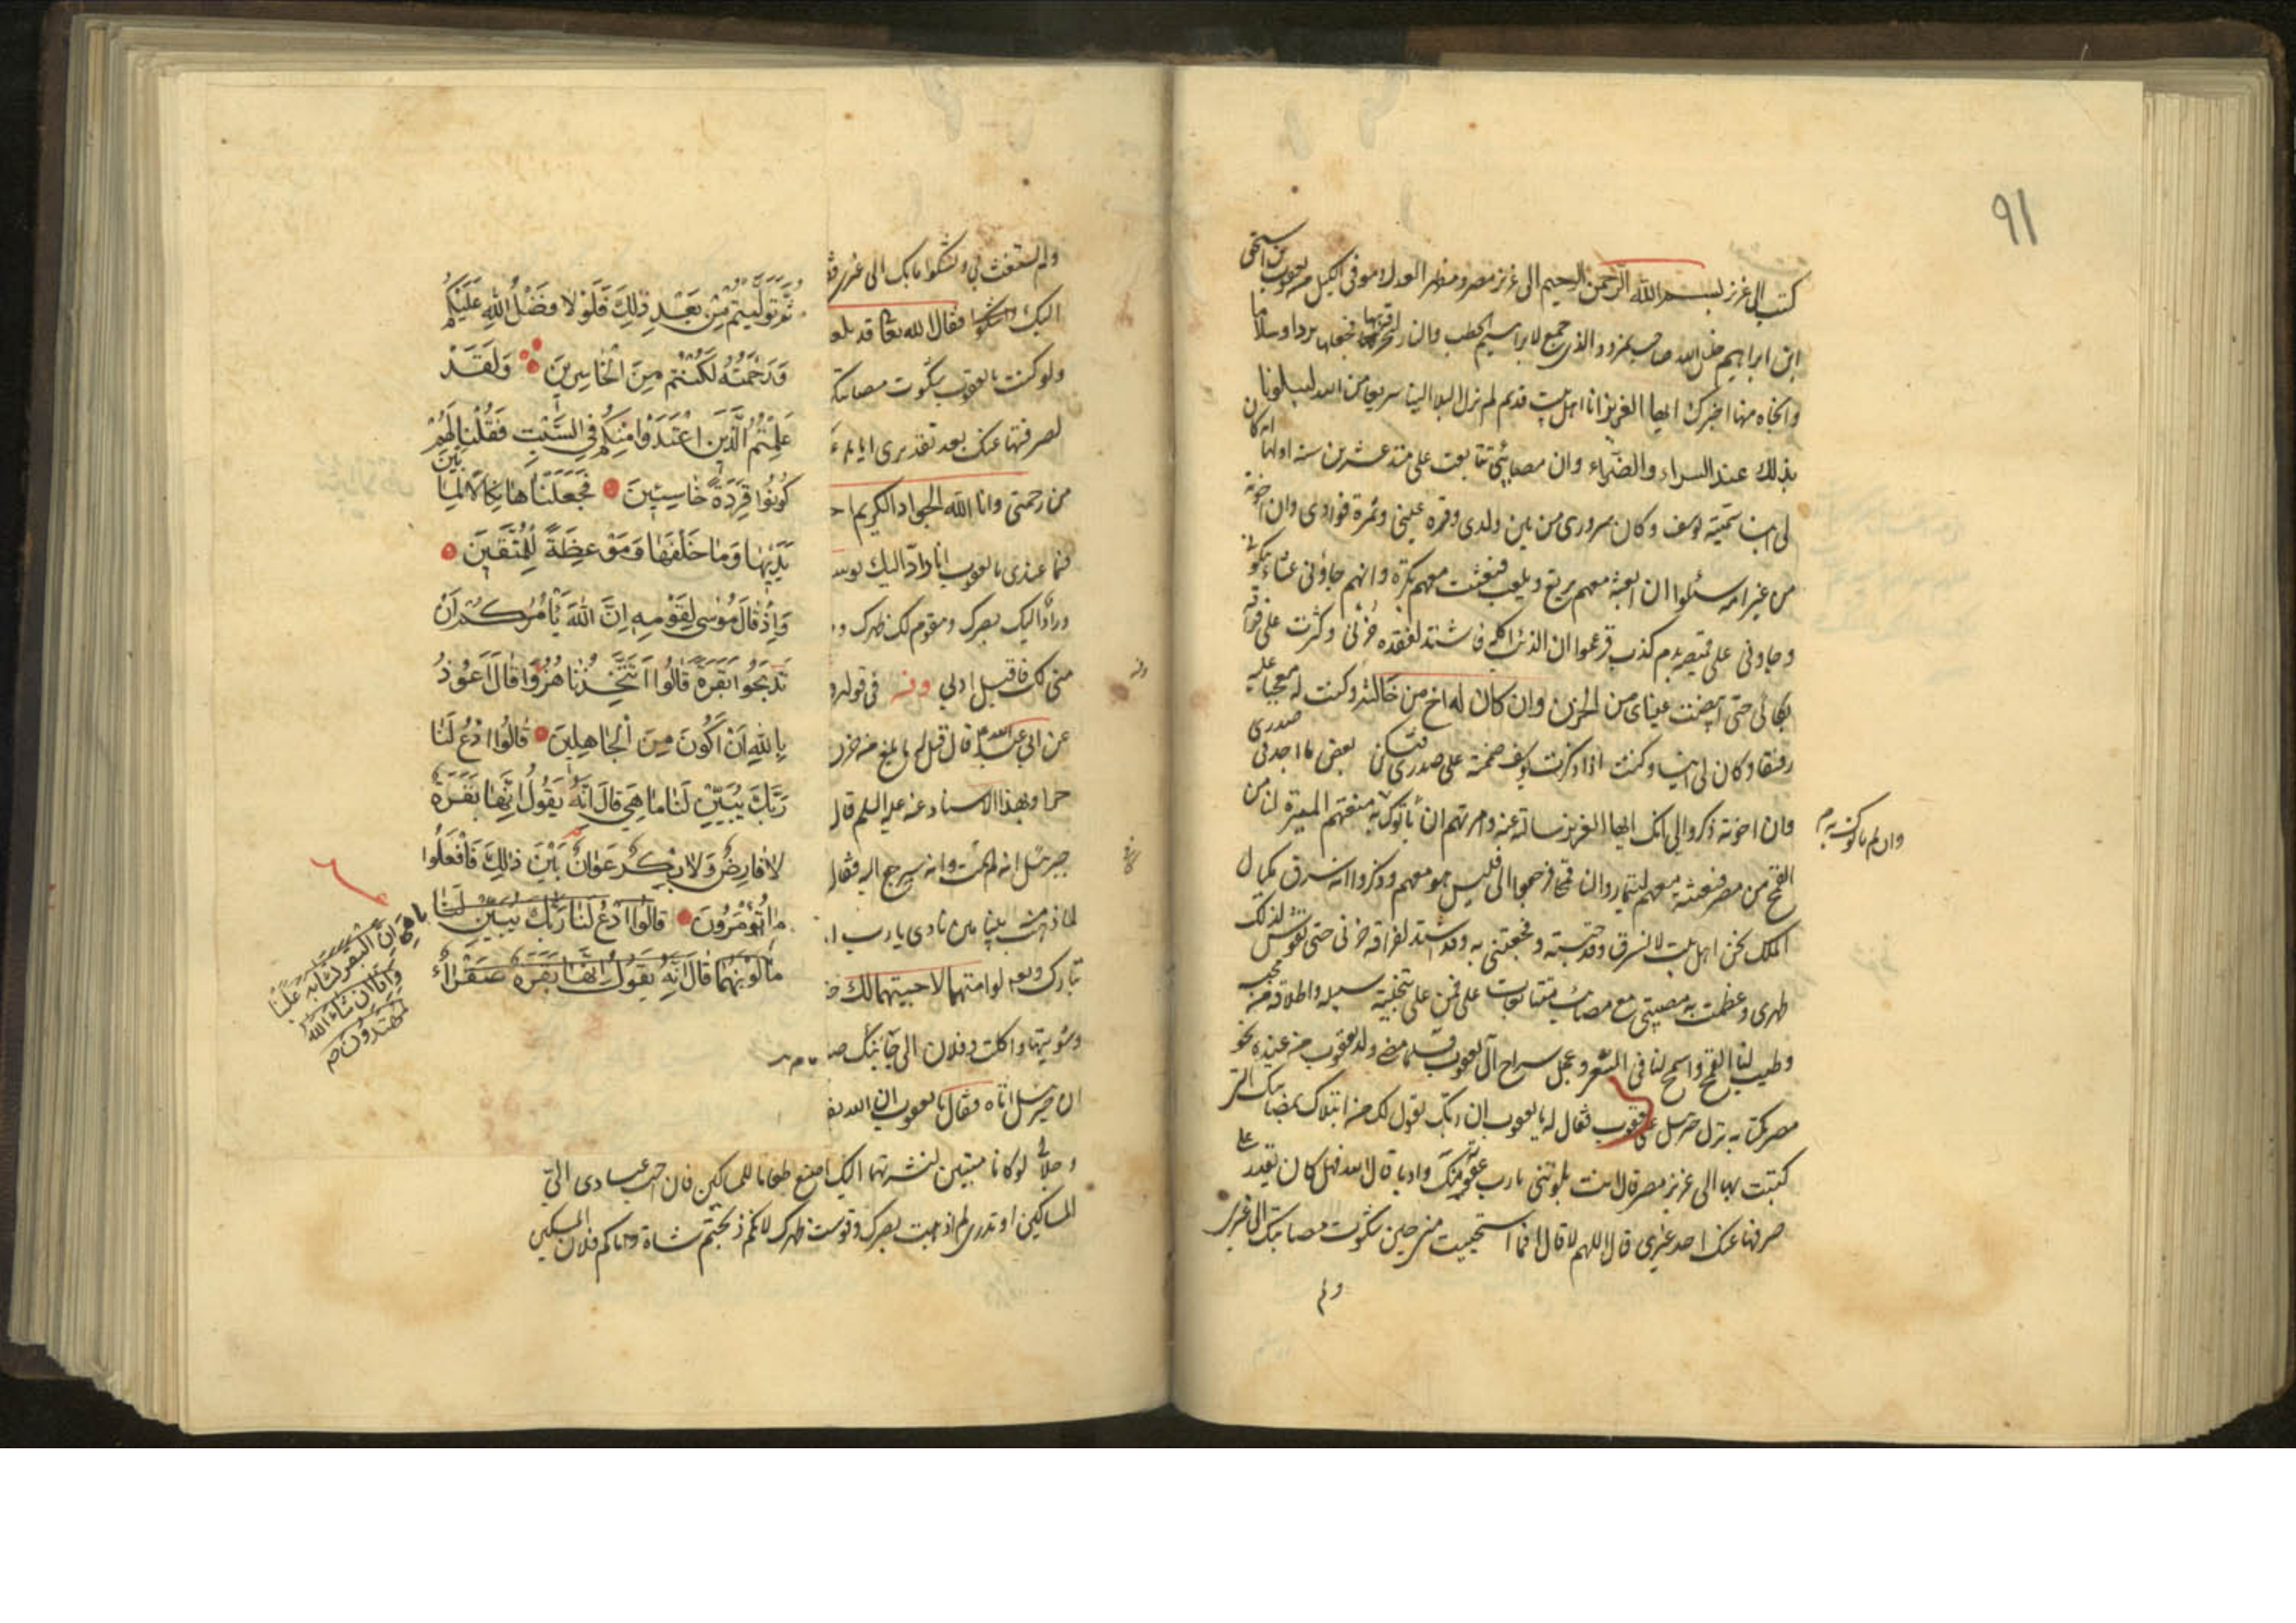 ٩١
كتب الى عزيز بسم الله الرحمن الرحيم الى عزيز مصر ومظهر العدل وموفى الكيل من يعقوب بن اسحق
ابن ابراهيم خليل الله صاحب نمرود الذى جمع لابراهيم الحطب والنار ليحرقه بها فجعلها بردا وسلاما
وانجاه منها اخبرك ايها العزيز انا اهل بيت قديم لم نزل البلا الينا سريعا من الله ليبلونا
بذلك عند السراء والضراء وان مصائبى تتابعت على منذ عشرين سنة اولها انه كان
لى ابن سميته يوسف وكان سرورى من بين ولدى وقرة عينى وثمرة فوادى وان اخوته
من غير امه سئلوا ان ابعثه معهم يرتع ويلعب فبعثت معهم بكرة وانهم جاؤنى عشاء يبكون
وجاونى على قميصه بدم كذب فزعموا ان الذئب اكله فاشتد لفقده حزنى وكثرت على فراقه
بكائى حتى ابيضت عيناى من الحزن وان كان له اخ من خالته وكنت له معجبا وعليه
رفيقا وكان لى انيسا وكنت اذا ذكرت يوسف ضممته على صدرى فيسكن بعض ما اجد فى صدرى
وان اخوته ذكروا لى انك ايها العزيز سالتهم عنه وامرتهم ان يأتوك به منعتهم الميرة لنا من
وان لم ياتوك به م
القمح من مصر فبعثته معهم ليتماروا لنا قمحا فرجعوا الى فليس هو معهم وذكروا انه سرق مكيال
الملك نحن اهل بيت لا نسرق وقد حبسته وفجعتنى به وقد اشتد لفراقه حزنى حتى تقوس لذلك
ظهرى وعظمت به مصيبتى مع مصائب متتابعات على فمن على بتخلية سبيله واطلاقه من حبسه
وطيب لنا القمح واسمح لنا فى السعر وعجل سراح آل يعقوب فلما مضى ولد يعقوب من عنده نحو
مصر بكتابه نزل جبرئيل على يعقوب فقال له يا يعقوب ان ربك يقول لك من ابتلاك بمصائبك التى
كتبت بها الى عزيز مصر قال انت بلوتنى يا رب عقوبة منك وادبا قال الله فهل كان يقدر على
صرفها عنك احد غيرى قال اللهم لا قال افما استحييت منى حين شكوت مصائبك الى غيرى
ولم
ولم تستغث بى وتشكوا ما بك الى
اليك واشكوا فقال الله تعالى قد بلغ
ولو كنت يا يعقوب شكوت مصائبك
لصرفتها عنك بعد تقديرى اياها
من رحمتى وانا الله الجواد الكريم
فما عندى يا يعقوب انا راد اليك
وراد اليك بصرك ومقوم لك ظهرك
منى لك فاقبل ادبى وفيه فى قوله
عن ابى عبد الله قال قيل له ما بلغ من حزن
وبهذا الاسناد عنه عليه السلم قال
جبرئيل انه لم يمت وانه سيرجع اليه فقال
لما ذهب بنيامين نادى يا رب
تبارك وتعالى لو امتهما لاحييتهما لك
وشويتها واكلت وفلان الى جانبك
ان جبرئيل اتاه فقال يا يعقوب ان الله
وجلالى لو كانا ميتين لنشرتهما اليك اصنع طعاما للمساكين فان احب عبادى الى
المساكين او تدرى لم اذهبت بصرك وقوست ظهرك لانكم ذبحتم شاة واتاكم فلان المسكين
ثُمَّ تَوَلَّيْتُمْ مِنْ بَعْدِ ذٰلِكَ فَلَوْلَا فَضْلُ اللّٰهِ عَلَيْكُمْ
وَرَحْمَتُهُ لَكُنْتُمْ مِنَ الْخَاسِرِينَ وَلَقَدْ
عَلِمْتُمُ الَّذِينَ اعْتَدَوْا مِنْكُمْ فِي السَّبْتِ فَقُلْنَا لَهُمْ
كُونُوا قِرَدَةً خَاسِئِينَ فَجَعَلْنَاهَا نَكَالًا لِمَا بَيْنَ
يَدَيْهَا وَمَا خَلْفَهَا وَمَوْعِظَةً لِلْمُتَّقِينَ
وَإِذْ قَالَ مُوسَى لِقَوْمِهِ إِنَّ اللّٰهَ يَأْمُرُكُمْ أَنْ
تَذْبَحُوا بَقَرَةً قَالُوا أَتَتَّخِذُنَا هُزُوًا قَالَ أَعُوذُ
بِاللّٰهِ أَنْ أَكُونَ مِنَ الْجَاهِلِينَ قَالُوا ادْعُ لَنَا
رَبَّكَ يُبَيِّنْ لَنَا مَا هِيَ قَالَ إِنَّهُ يَقُولُ إِنَّهَا بَقَرَةٌ
لَا فَارِضٌ وَلَا بِكْرٌ عَوَانٌ بَيْنَ ذٰلِكَ فَافْعَلُوا
مَا تُؤْمَرُونَ قَالُوا ادْعُ لَنَا رَبَّكَ يُبَيِّنْ لَنَا
مَا لَوْنُهَا قَالَ إِنَّهُ يَقُولُ إِنَّهَا بَقَرَةٌ صَفْرَاءُ
مَا هِيَ إِنَّ الْبَقَرَ تَشَابَهَ عَلَيْنَا
وَإِنَّا إِنْ شَاءَ اللّٰهُ
لَمُهْتَدُونَ